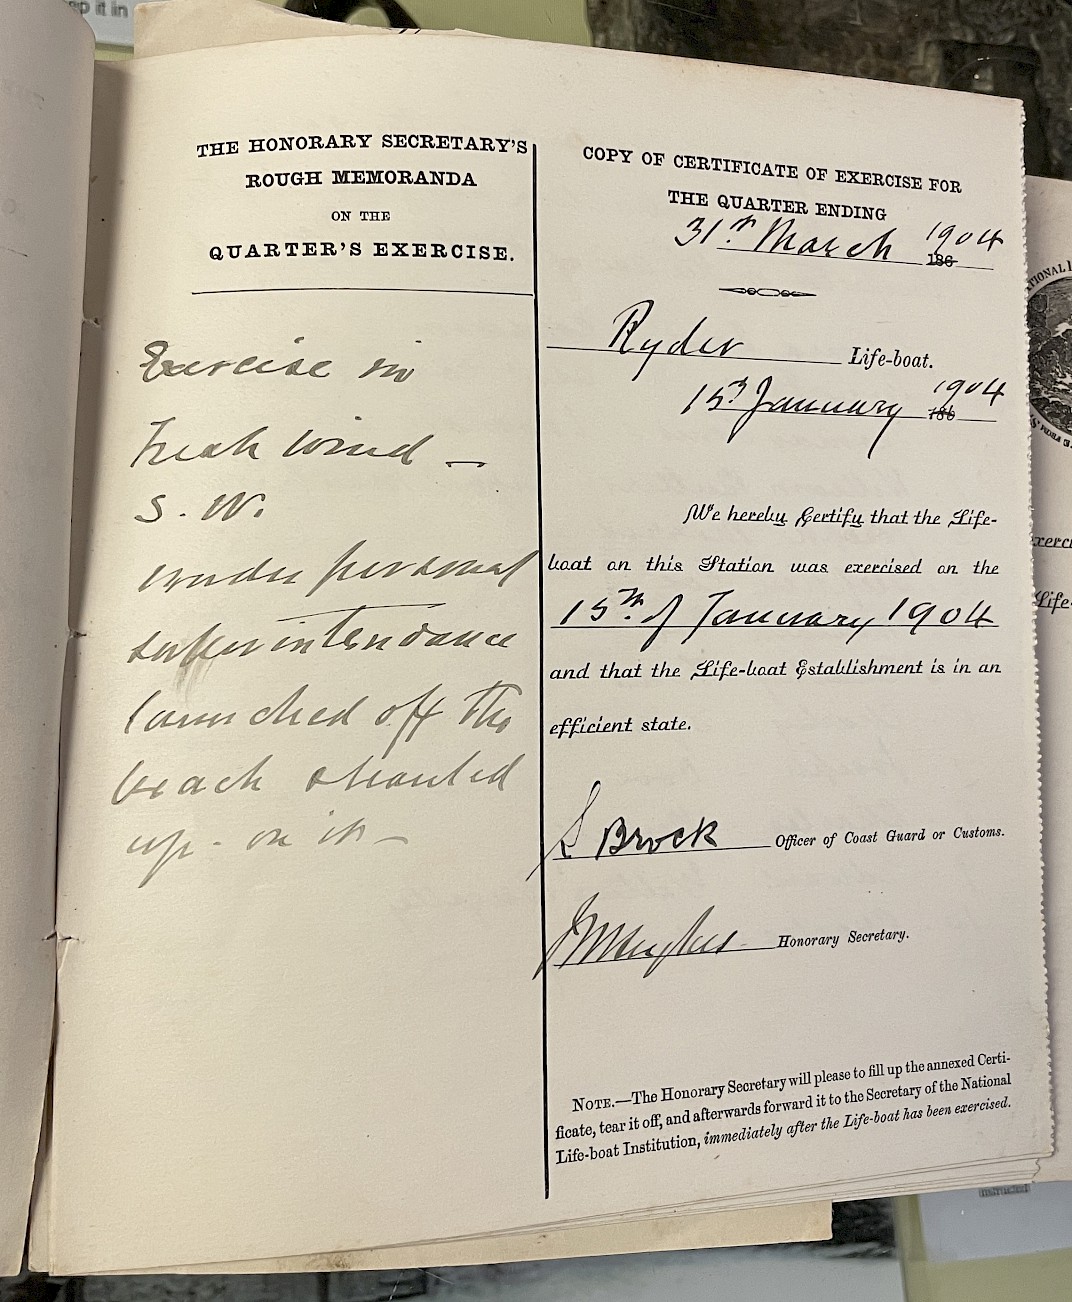 p it in
THE HONORARY SECRETARY'S
ROUGH MEMORANDA
ON THE
QUARTER'S EXERCISE.
Exercise in
Fresh Wind —
S. W.
under personal
superintendance
launched off the
beach & hauled
up on it —
COPY OF CERTIFICATE OF EXERCISE FOR
THE QUARTER ENDING
31st March 1904
186
Ryder Life-boat.
15th January 1904
186
We hereby Certify that the Life-
boat on this Station was exercised on the
15th of January 1904
and that the Life-boat Establishment is in an
efficient state.
S Brock Officer of Coast Guard or Customs.
Honorary Secretary.
NOTE.—The Honorary Secretary will please to fill up the annexed Certi-
ficate, tear it off, and afterwards forward it to the Secretary of the National
Life-boat Institution, immediately after the Life-boat has been exercised.
Life-